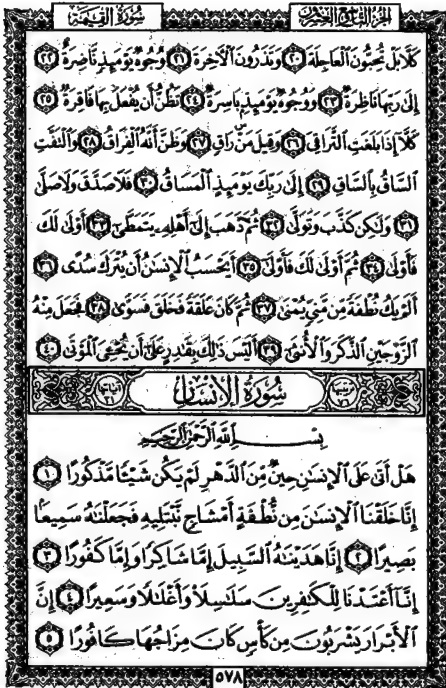 الجزء التاسع والعشرون سورة القيامة
كَلَّا بَلْ تُحِبُّونَ ٱلْعَاجِلَةَ ٢٠ وَتَذَرُونَ ٱلْـَٔاخِرَةَ ٢١ وُجُوهٌ يَوْمَئِذٍ نَّاضِرَةٌ ٢٢
إِلَىٰ رَبِّهَا نَاظِرَةٌ ٢٣ وَوُجُوهٌ يَوْمَئِذٍۭ بَاسِرَةٌ ٢٤ تَظُنُّ أَن يُفْعَلَ بِهَا فَاقِرَةٌ ٢٥
كَلَّآ إِذَا بَلَغَتِ ٱلتَّرَاقِىَ ٢٦ وَقِيلَ مَنْ رَاقٍ ٢٧ وَظَنَّ أَنَّهُ ٱلْفِرَاقُ ٢٨ وَٱلْتَفَّتِ
ٱلسَّاقُ بِٱلسَّاقِ ٢٩ إِلَىٰ رَبِّكَ يَوْمَئِذٍ ٱلْمَسَاقُ ٣٠ فَلَا صَدَّقَ وَلَا صَلَّىٰ
٣١ وَلَـٰكِن كَذَّبَ وَتَوَلَّىٰ ٣٢ ثُمَّ ذَهَبَ إِلَىٰٓ أَهْلِهِۦ يَتَمَطَّىٰٓ ٣٣ أَوْلَىٰ لَكَ
فَأَوْلَىٰ ٣٤ ثُمَّ أَوْلَىٰ لَكَ فَأَوْلَىٰٓ ٣٥ أَيَحْسَبُ ٱلْإِنسَـٰنُ أَن يُتْرَكَ سُدًى ٣٦
أَلَمْ يَكُ نُطْفَةً مِّن مَّنِىٍّ يُمْنَىٰ ٣٧ ثُمَّ كَانَ عَلَقَةً فَخَلَقَ فَسَوَّىٰ ٣٨ فَجَعَلَ مِنْهُ
ٱلزَّوْجَيْنِ ٱلذَّكَرَ وَٱلْأُنثَىٰٓ ٣٩ أَلَيْسَ ذَٰلِكَ بِقَـٰدِرٍ عَلَىٰٓ أَن يُحْـِۧىَ ٱلْمَوْتَىٰ ٤٠
سورة الإنسان
بسم الله الرحمن الرحيم
هَلْ أَتَىٰ عَلَى ٱلْإِنسَـٰنِ حِينٌ مِّنَ ٱلدَّهْرِ لَمْ يَكُن شَيْـًٔا مَّذْكُورًا ١
إِنَّا خَلَقْنَا ٱلْإِنسَـٰنَ مِن نُّطْفَةٍ أَمْشَاجٍ نَّبْتَلِيهِ فَجَعَلْنَـٰهُ سَمِيعًۢا
بَصِيرًا ٢ إِنَّا هَدَيْنَـٰهُ ٱلسَّبِيلَ إِمَّا شَاكِرًا وَإِمَّا كَفُورًا ٣
إِنَّآ أَعْتَدْنَا لِلْكَـٰفِرِينَ سَلَـٰسِلَا۟ وَأَغْلَـٰلًا وَسَعِيرًا ٤ إِنَّ
ٱلْأَبْرَارَ يَشْرَبُونَ مِن كَأْسٍ كَانَ مِزَاجُهَا كَافُورًا ٥
٥٧٨